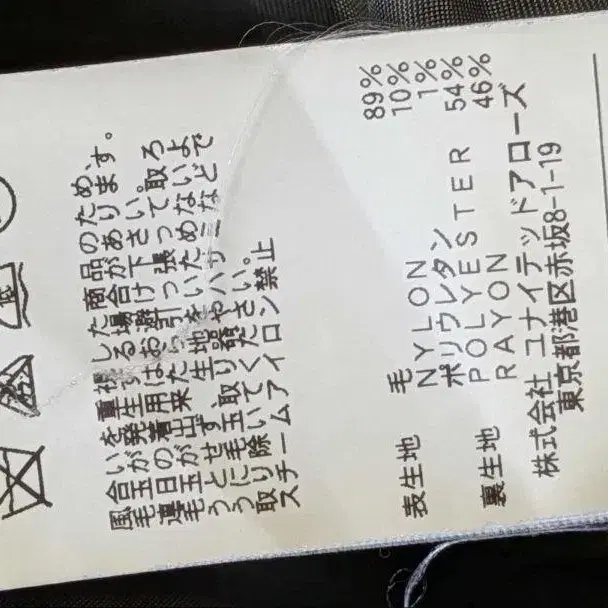 風合いを重視した商品のため、
毛玉が発生する場合があります。
連日の着用はお避け下さい。
毛玉が出来た 引っ張って取ろ
うとせず、生地をいためないよ
うに毛玉取り器やハサミなどで
取り除いてください。
スチームアイロン禁止
表生地 毛 89%
NYLON 10%
ポリウレタン 1%
裏生地 POLYESTER 54%
RAYON 46%
株式会社 ユナイテッドアローズ
東京都港区赤坂8-1-19